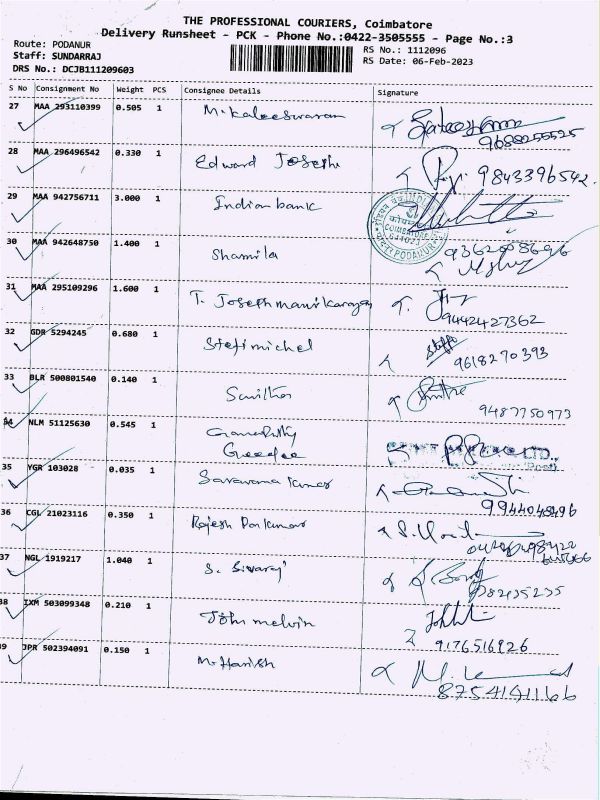 THE PROFESSIONAL COURIERS, Coimbatore
Delivery Runsheet - PCK - Phone No.:0422-3505555 - Page No.:3
Route: PODANUR
RS No.: 1112096
Staff: SUNDARRAJ
RS Date: 06-Feb-2023
DRS No.: DCJB111209603
S No Consignment No Weight PCS Consignee Details Signature
27 MAA 293110399 0.505 1 M.kaleeswaran
9688255525
28 MAA 296496542 0.330 1 Edward Joseph
9843396542.
29 MAA 942756711 3.000 1 Indian bank
COIMBATORE
641023
PODANUR
30 MAA 942648750 1.400 1 Shamila
31 MAA 295109296 1.600 1 T.
9442427362
32 GDR 5294245 0.680 1 Stefimichel
9618270393
33 BLR 500801540 0.140 1
9487750973
34 NLM 51125630 0.545 1
35 YGR 103028 0.035 1 Saravana kumar
9944048496
36 CGL 21023116 0.350 1 Rajesh
37 NGL 1919217 1.040 1 S. Sivaraj
38 IXM 503099348 0.210 1 John melvin
9176516926
39 JPR 502394091 0.150 1 M.Harish